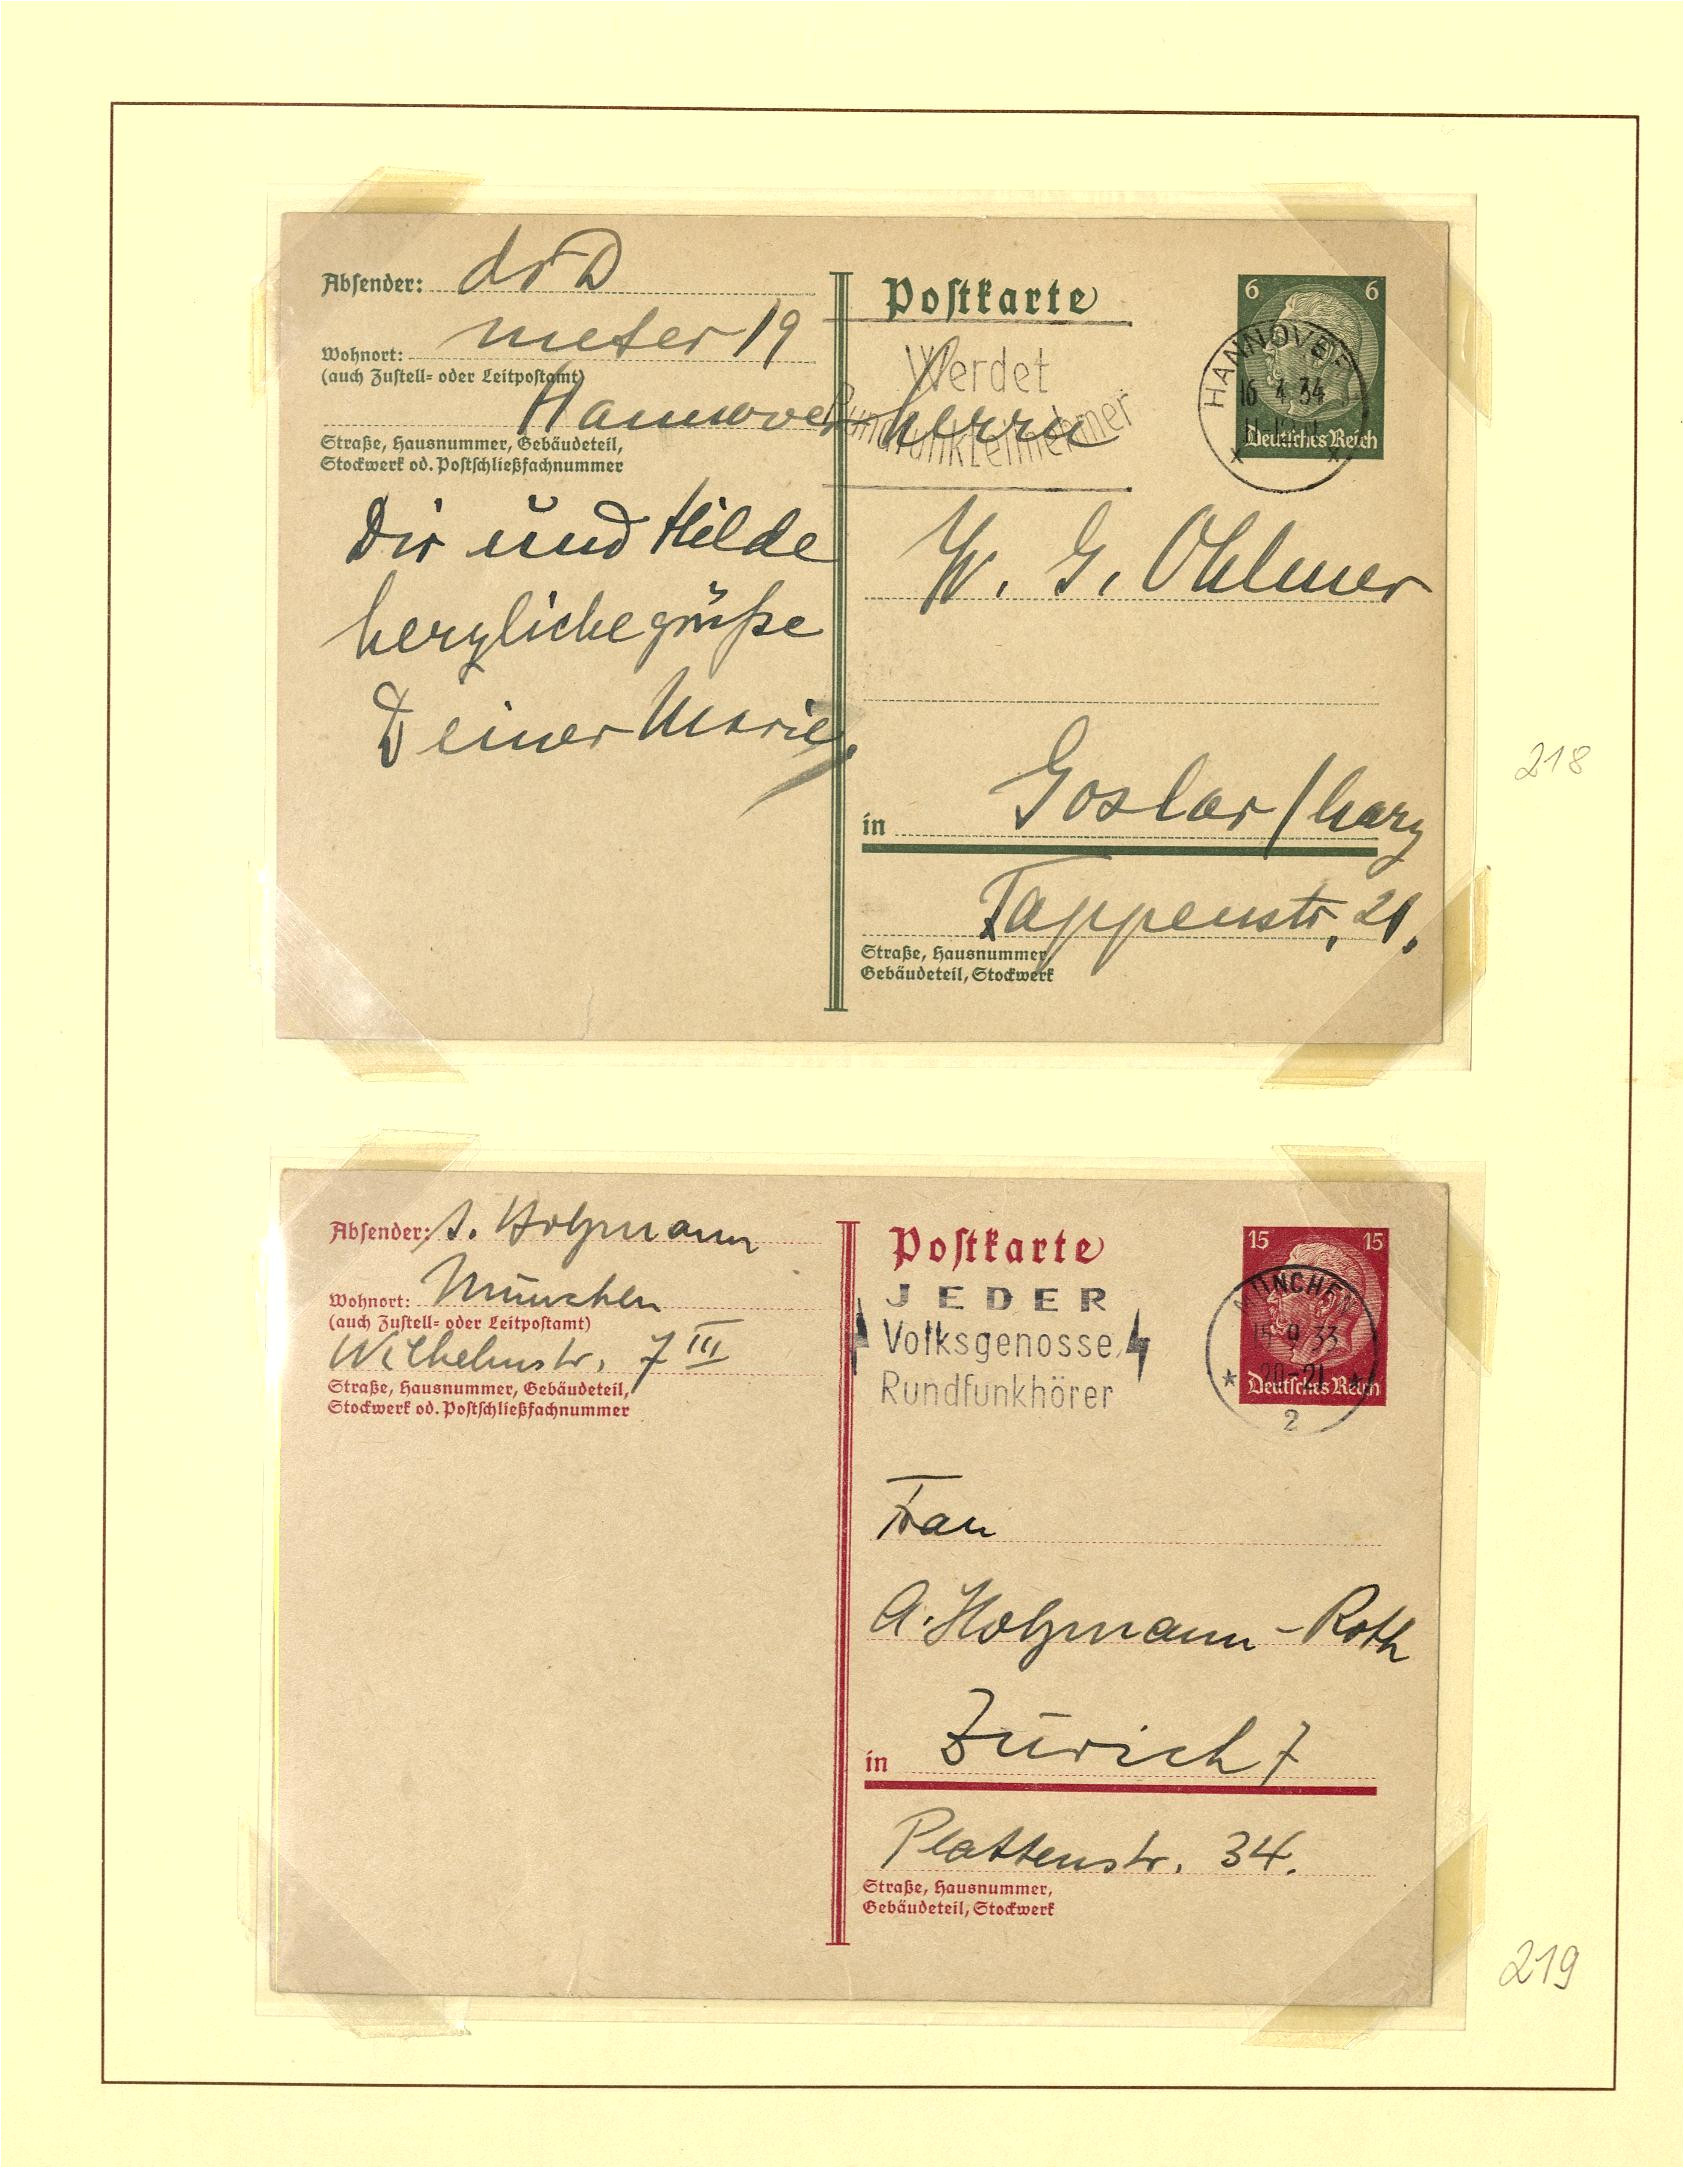 Absender:
Wohnort: meter 19
(auch Zustell- oder Leitpostamt)
Hannover
Straße, Hausnummer, Gebäudeteil,
Stockwerk od. Postschließfachnummer
Dir und Hilde
herzliche grüße
Deiner Marie.
Postkarte
Werdet
Rundfunkteilnehmer
6 6
HANNOVER
16 4 34
Deutsches Reich
Herrn
W. G. Ohlmer
in Goslar / Harz
Tappenstr, 21.
Straße, Hausnummer,
Gebäudeteil, Stockwerk
218
Absender: A. Holzmann
Wohnort: München
(auch Zustell- oder Leitpostamt)
Wilhelmstr. 7 III
Straße, Hausnummer, Gebäudeteil,
Stockwerk od. Postschließfachnummer
Postkarte
JEDER
Volksgenosse
Rundfunkhörer
15 15
MÜNCHEN
15 9 33
20-21
Deutsches Reich
2
Frau
A. Holzmann-Roth
in Zürich 7
Plattenstr. 34.
Straße, Hausnummer,
Gebäudeteil, Stockwerk
219